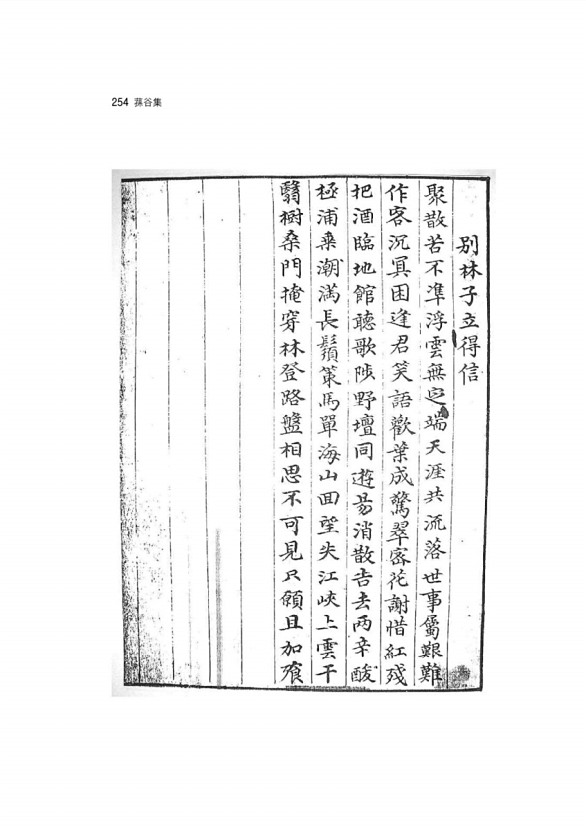 254 蓀谷集
別林子立得信
聚散苦不凖浮雲無㝎端天涯共流落世事屬艱難
作客沉冥困逢君笑語歡葉成驚翠密花謝惜紅殘
把酒臨地館聽歌陟野壇同遊昜消散告去两辛酸
極浦乗潮滿長鬚策馬單海山回望失江峽上雲干
翳樹桑門掩穿林登路盤相思不可見只願且加飱